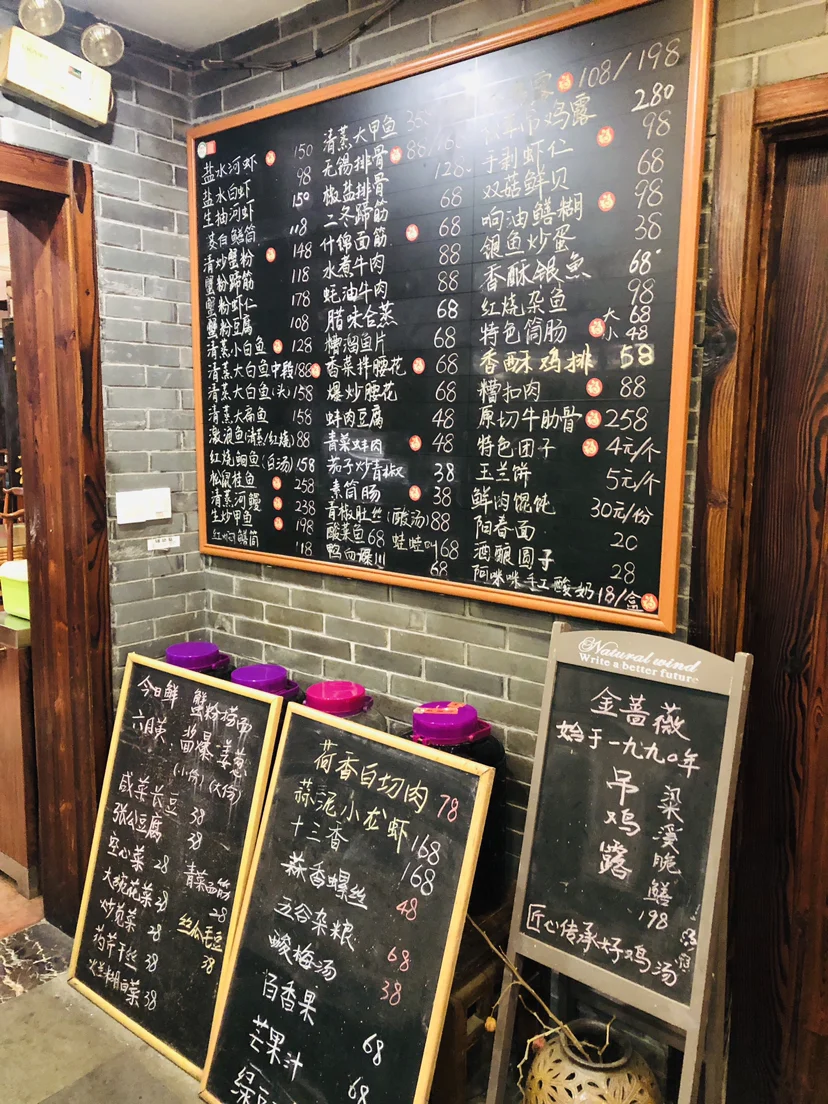 盐水河虾 150
盐水白虾 98
生抽河虾 150
茭白鳝筒 118
清炒蟹粉 148
蟹粉蹄筋 118
蟹粉虾仁 178
蟹粉豆腐 108
清蒸小白鱼 128
清蒸大白鱼中段 188
清蒸大白鱼(头) 158
清蒸大扁鱼 158
激浪鱼(清蒸/红烧) 88
红烧鮰鱼(白汤) 158
松鼠桂鱼 258
清蒸河鳗 238
生炒甲鱼 198
红焖鳝筒 118
清蒸大甲鱼
无锡排骨
椒盐排骨 128
二冬蹄筋 68
什锦面筋 68
水煮牛肉 88
蚝油牛肉 88
腊味合蒸 68
糟溜鱼片 68
香菜拌腰花 68
爆炒腰花 68
蚌肉豆腐 48
青菜蚌肉 48
茄子炒青椒 38
素筒肠 38
青椒肚丝(酸汤) 88
酸菜鱼 68 蛙蛙叫 68
鸭血爆川 68
108/198
吊鸡露 280
手剥虾仁 98
双菇鲜贝 68
响油鳝糊 98
银鱼炒蛋 38
香酥银魚 68
红烧杂鱼 98
特色筒肠 大 68
小 48
香酥鸡排 58
糟扣肉 88
原切牛肋骨 258
特色团子 4元/个
玉兰饼 5元/个
鲜肉馄饨 30元/份
阳春面 20
酒酿圆子 28
阿咪咪手工酸奶 18/盒
今日鲜 蟹粉捞面
六月黄 酱爆 姜葱
(小份) (大份)
咸菜长豆 38
张公豆腐 38
空心菜 28
大碗花菜 28
炒苋菜 28
药芹干丝 38
火羊糊白菜 38
青菜面筋 28
丝瓜毛豆 38
荷香白切肉 78
蒜泥小龙虾 168
十三香 168
蒜香螺丝 48
五谷杂粮 68
酸梅汤 38
百香果 68
芒果汁 68
绿豆
Natural wind
Write a better future
金蔷薇
始于一九九〇年
吊鸡露
梁溪脆鳝
198
匠心传承好鸡汤